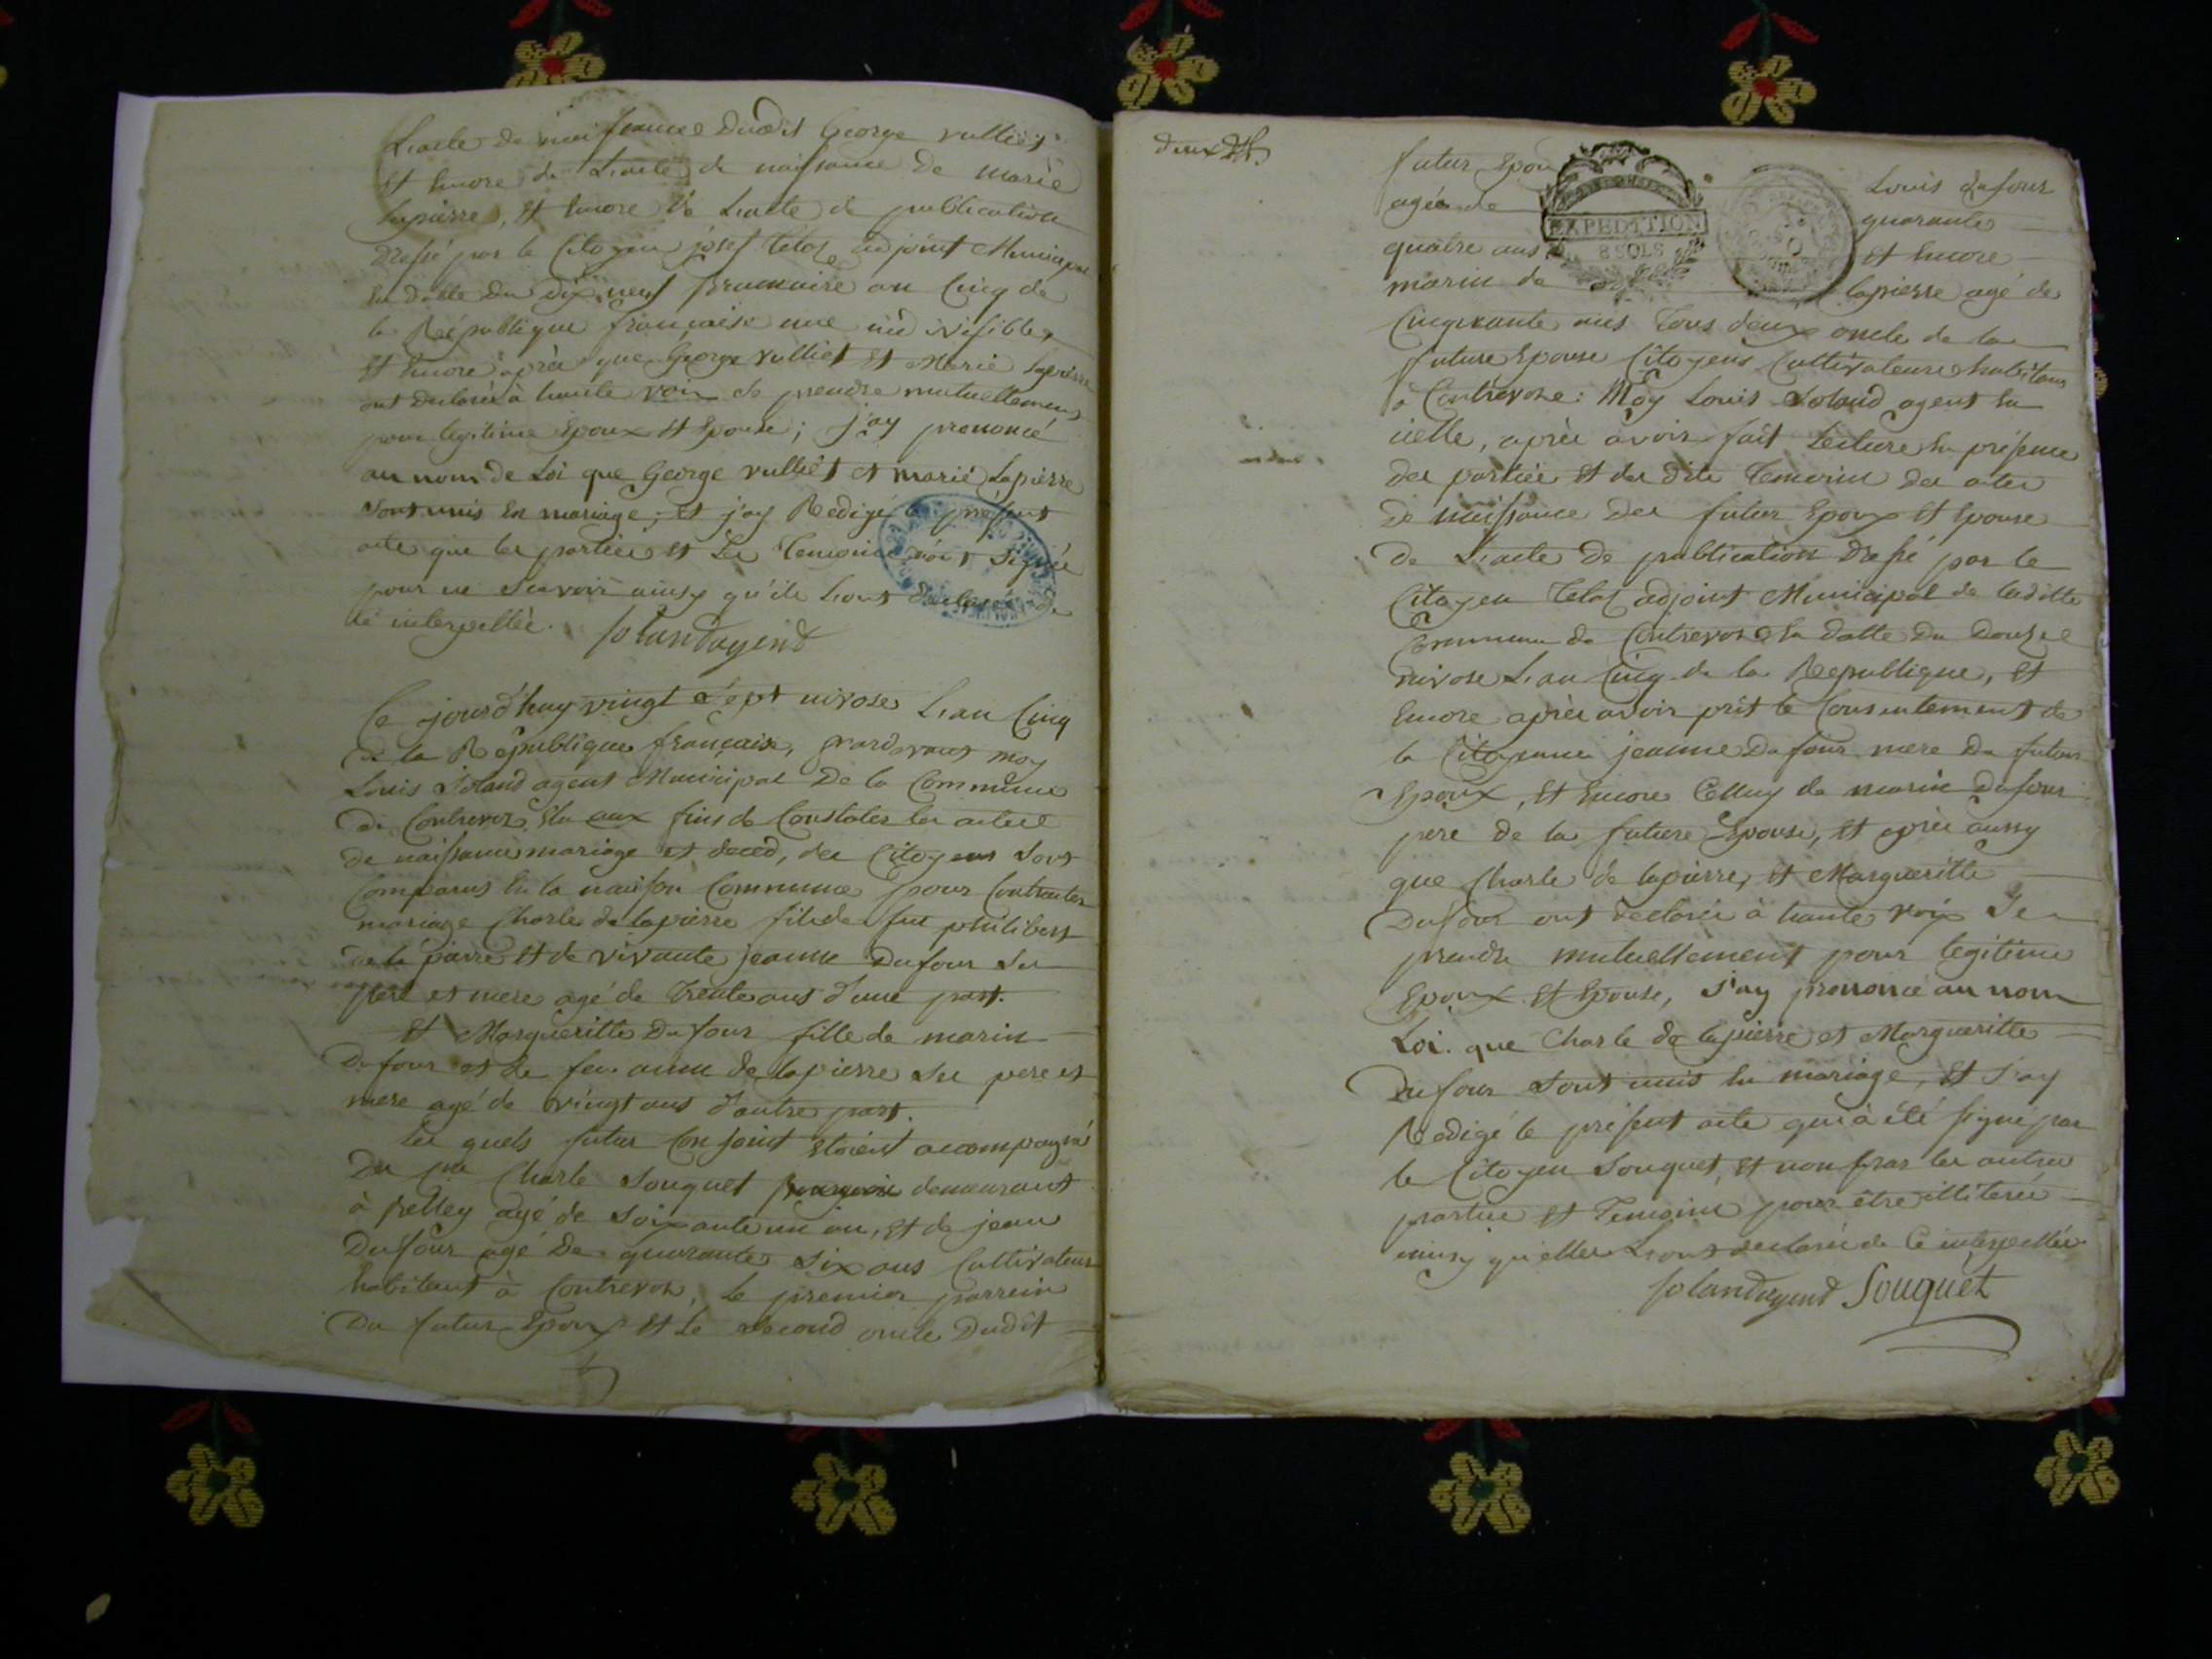 L'acte de naissance dudit George vulliet
et encore de L'acte de naissance de marie
Lapierre, et encore de L'acte de publication
dressé par le Citoyen josef Telos adjoint Municipal
en datte du dix neuf brumaire an Cinq de
la République française une indivisible,
et encore après que George vulliet et Marie Lapierre
ont declarés à haute voix de prendre mutuellement
pour legitime Epoux et Epouse; j'ay prononcé
au nom de Loi que George vulliet et marie Lapierre
sont unis en mariage; et j'ay Redigé le présent
acte que les parties et Les Temoins n'ont signée
pour ne scavoir ainsy qu'ils L'ont declaré de
ce interpellée.
Solandagend
Ce jourd'huy vingt sept nivose L'an Cinq
de la République française, pardevant moy
Louis Soland agent Municipal De la Commune
de Contrevoz Elu aux fins de Constater les actes
de naissance mariage et deced, des Citoyens sont
Comparus En la maison Commune pour Contracter
mariage Charle de lapierre fils de feu philibert
de la pierre et de vivante jeanne Dufour ses
pere et mere agé de Trente ans d'une part.
Et Margueritte Dufour fille de marin
Dufour et de feu anne de lapierre ses pere et
mere agé de vingt ans d'autre part.
Les quels futur Conjoint etoient accompagné
De Charle Souquet demeurant
à Belley agé de Soixante un an, et de jean
Dufour agé De quarante six ans Cultivateur
habitant à Contrevoz, Le premier parrein
Du futur Epoux et le second oncle Dudit
deux
futur Epoux Louis dufour
agée de quarante
quatre ans et Encore
marin de lapierre agé de
Cinquante ans Tous deux oncle de la
future Epouse Citoyens Cultivateurs habitans
à Contrevoz: Moy Louis Soland agent En
icelle, après avoir fait Lecture En présence
des parties et des dits Temoin des actes
de naissance des futur Epoux et Epouse
De L'acte De publication dressé par le
Citoyen Telos adjoint Municipal de laditte
Commune de Contrevoz En datte du Douze
nivose L'an Cinq de la Republique, et
Encore après avoir prit le Consentement de
la Citoyenne jeanne Dufour mere Du futur
Epoux, et Encore Celluy de marin Dufour
pere de la future Epouse, et après aussy
que Charle de lapierre, et Margueritte
Dufour ont declarée à haute voix Se
prendre mutuellement pour legitime
Epoux et Epouse, J'ay prononcé au nom
Loi. que Charle de lapierre et Margueritte
Dufour sont unis En mariage, et J'ay
Redigé le présent acte qui à été signé par
le Citoyen Souquet, et non pas les autres
parties et Temoins pour être illiterés
ainsy qu'elles L'ont declarée de Ce interpellée
Solandagend Souquet
EXPEDITION
8 SOLS